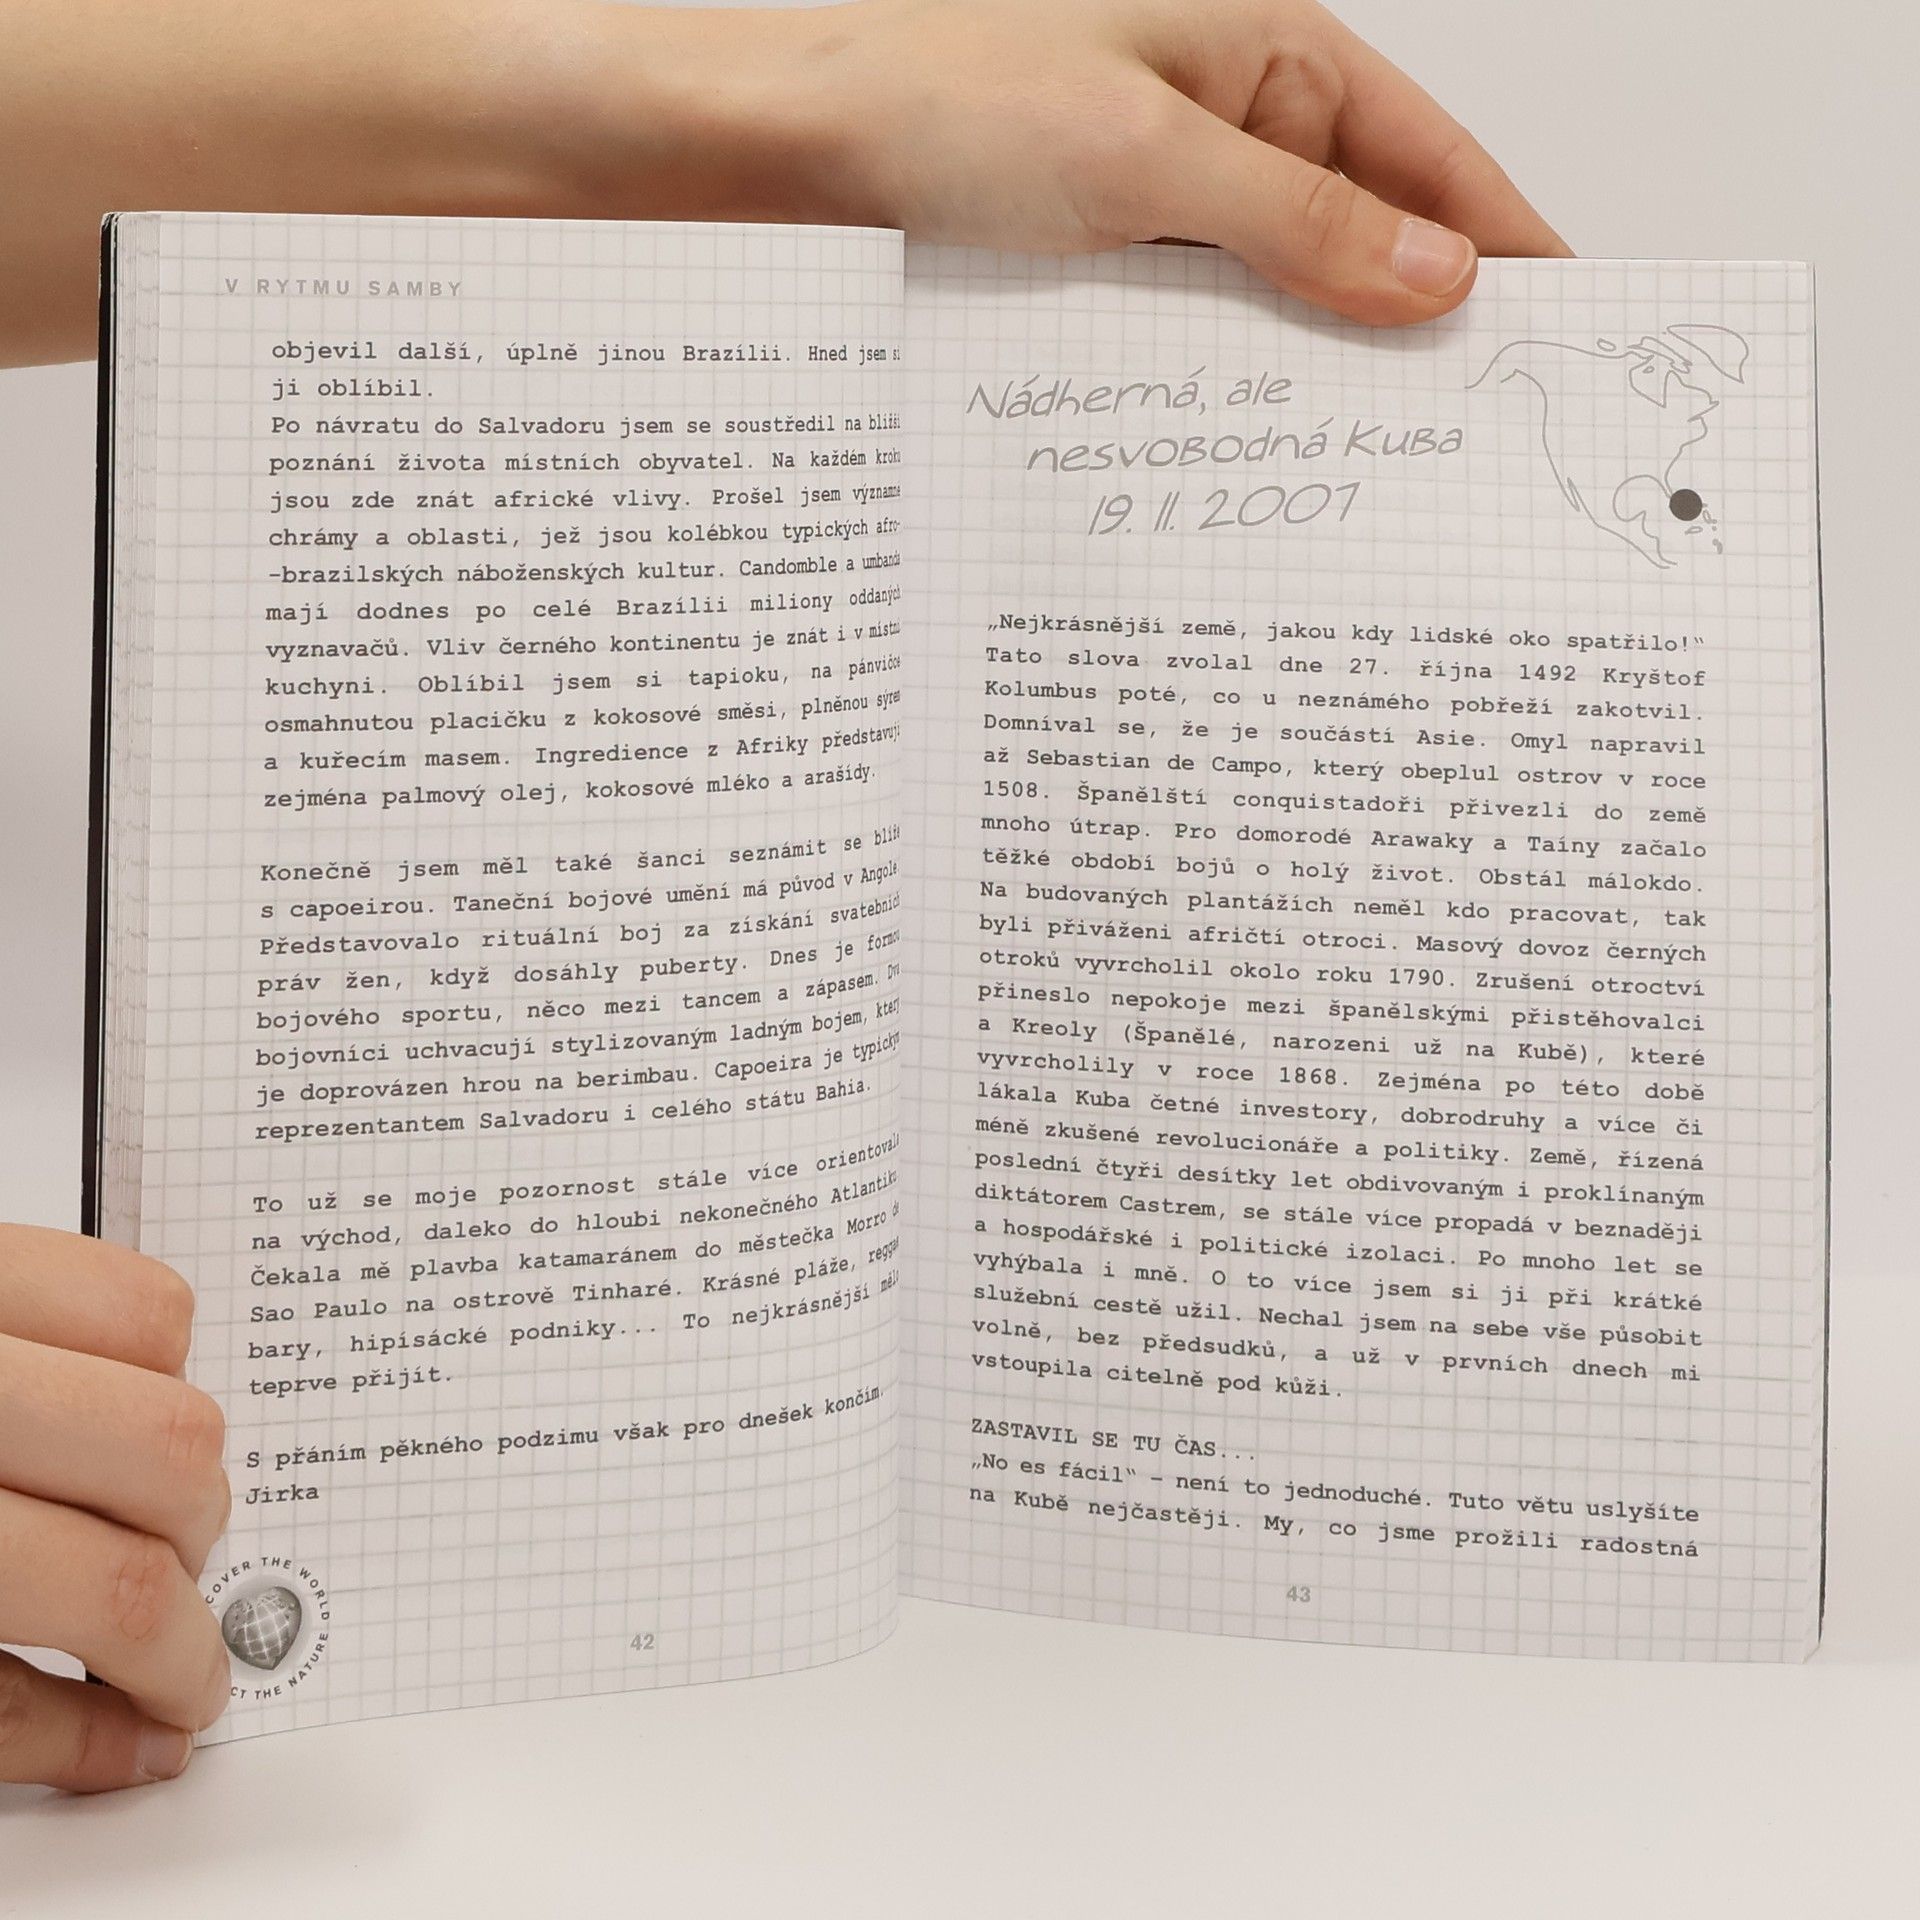 V RYTMU SAMBY
objevil další, úplně jinou Brazílii. Hned jsem si
ji oblíbil.
Po návratu do Salvadoru jsem se soustředil na bližší
poznání života místních obyvatel. Na každém kroku
jsou zde znát africké vlivy. Prošel jsem významné
chrámy a oblasti, jež jsou kolébkou typických afro-
-brazilských náboženských kultur. Candomble a umbanda
mají dodnes po celé Brazílii miliony oddaných
vyznavačů. Vliv černého kontinentu je znát i v místní
kuchyni. Oblíbil jsem si tapioku, na pánvičce
osmahnutou placičku z kokosové směsi, plněnou sýrem
a kuřecím masem. Ingredience z Afriky představují
zejména palmový olej, kokosové mléko a arašídy.
Konečně jsem měl také šanci seznámit se blíže
s capoeirou. Taneční bojové umění má původ v Angole.
Představovalo rituální boj za získání svatebních
práv žen, když dosáhly puberty. Dnes je formou
bojového sportu, něco mezi tancem a zápasem. Dva
bojovníci uchvacují stylizovaným ladným bojem, který
je doprovázen hrou na berimbau. Capoeira je typickým
reprezentantem Salvadoru i celého státu Bahia.
To už se moje pozornost stále více orientovala
na východ, daleko do hloubi nekonečného Atlantiku.
Čekala mě plavba katamaránem do městečka Morro de
Sao Paulo na ostrově Tinharé. Krásné pláže, reggae
bary, hipísácké podniky... To nejkrásnější mělo
teprve přijít.
S přáním pěkného podzimu však pro dnešek končím.
Jirka
COVER THE WORLD
CT THE NATURE
42
Nádherná, ale
nesvobodná Kuba
19. 11. 2001
„Nejkrásnější země, jakou kdy lidské oko spatřilo!“
Tato slova zvolal dne 27. října 1492 Kryštof
Kolumbus poté, co u neznámého pobřeží zakotvil.
Domníval se, že je součástí Asie. Omyl napravil
až Sebastian de Campo, který obeplul ostrov v roce
1508. Španělští conquistadoři přivezli do země
mnoho útrap. Pro domorodé Arawaky a Taíny začalo
těžké období bojů o holý život. Obstál málokdo.
Na budovaných plantážích neměl kdo pracovat, tak
byli přiváženi afričtí otroci. Masový dovoz černých
otroků vyvrcholil okolo roku 1790. Zrušení otroctví
přineslo nepokoje mezi španělskými přistěhovalci
a Kreoly (Španělé, narozeni už na Kubě), které
vyvrcholily v roce 1868. Zejména po této době
lákala Kuba četné investory, dobrodruhy a více či
méně zkušené revolucionáře a politiky. Země, řízená
poslední čtyři desítky let obdivovaným i proklínaným
diktátorem Castrem, se stále více propadá v beznaději
a hospodářské i politické izolaci. Po mnoho let se
vyhýbala i mně. O to více jsem si ji při krátké
služební cestě užil. Nechal jsem na sebe vše působit
volně, bez předsudků, a už v prvních dnech mi
vstoupila citelně pod kůži.
ZASTAVIL SE TU ČAS...
„No es fácil“ – není to jednoduché. Tuto větu uslyšíte
na Kubě nejčastěji. My, co jsme prožili radostná
43